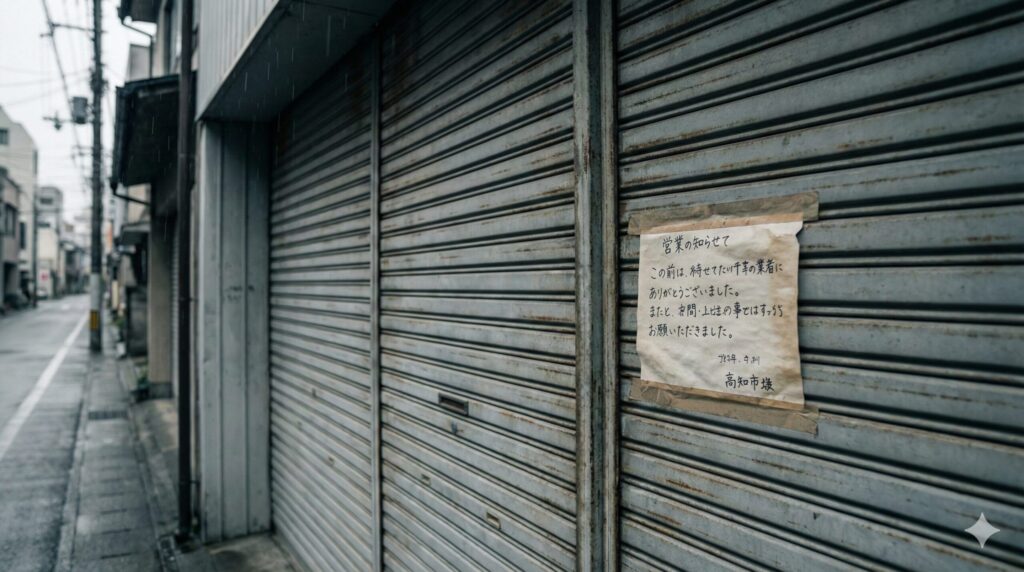 営業の知らせて
この前は、待せてたい千事の業者に
ありがとうございました。
またと、お間・上は主の事ではすっ
お願いただきました。
高知市様